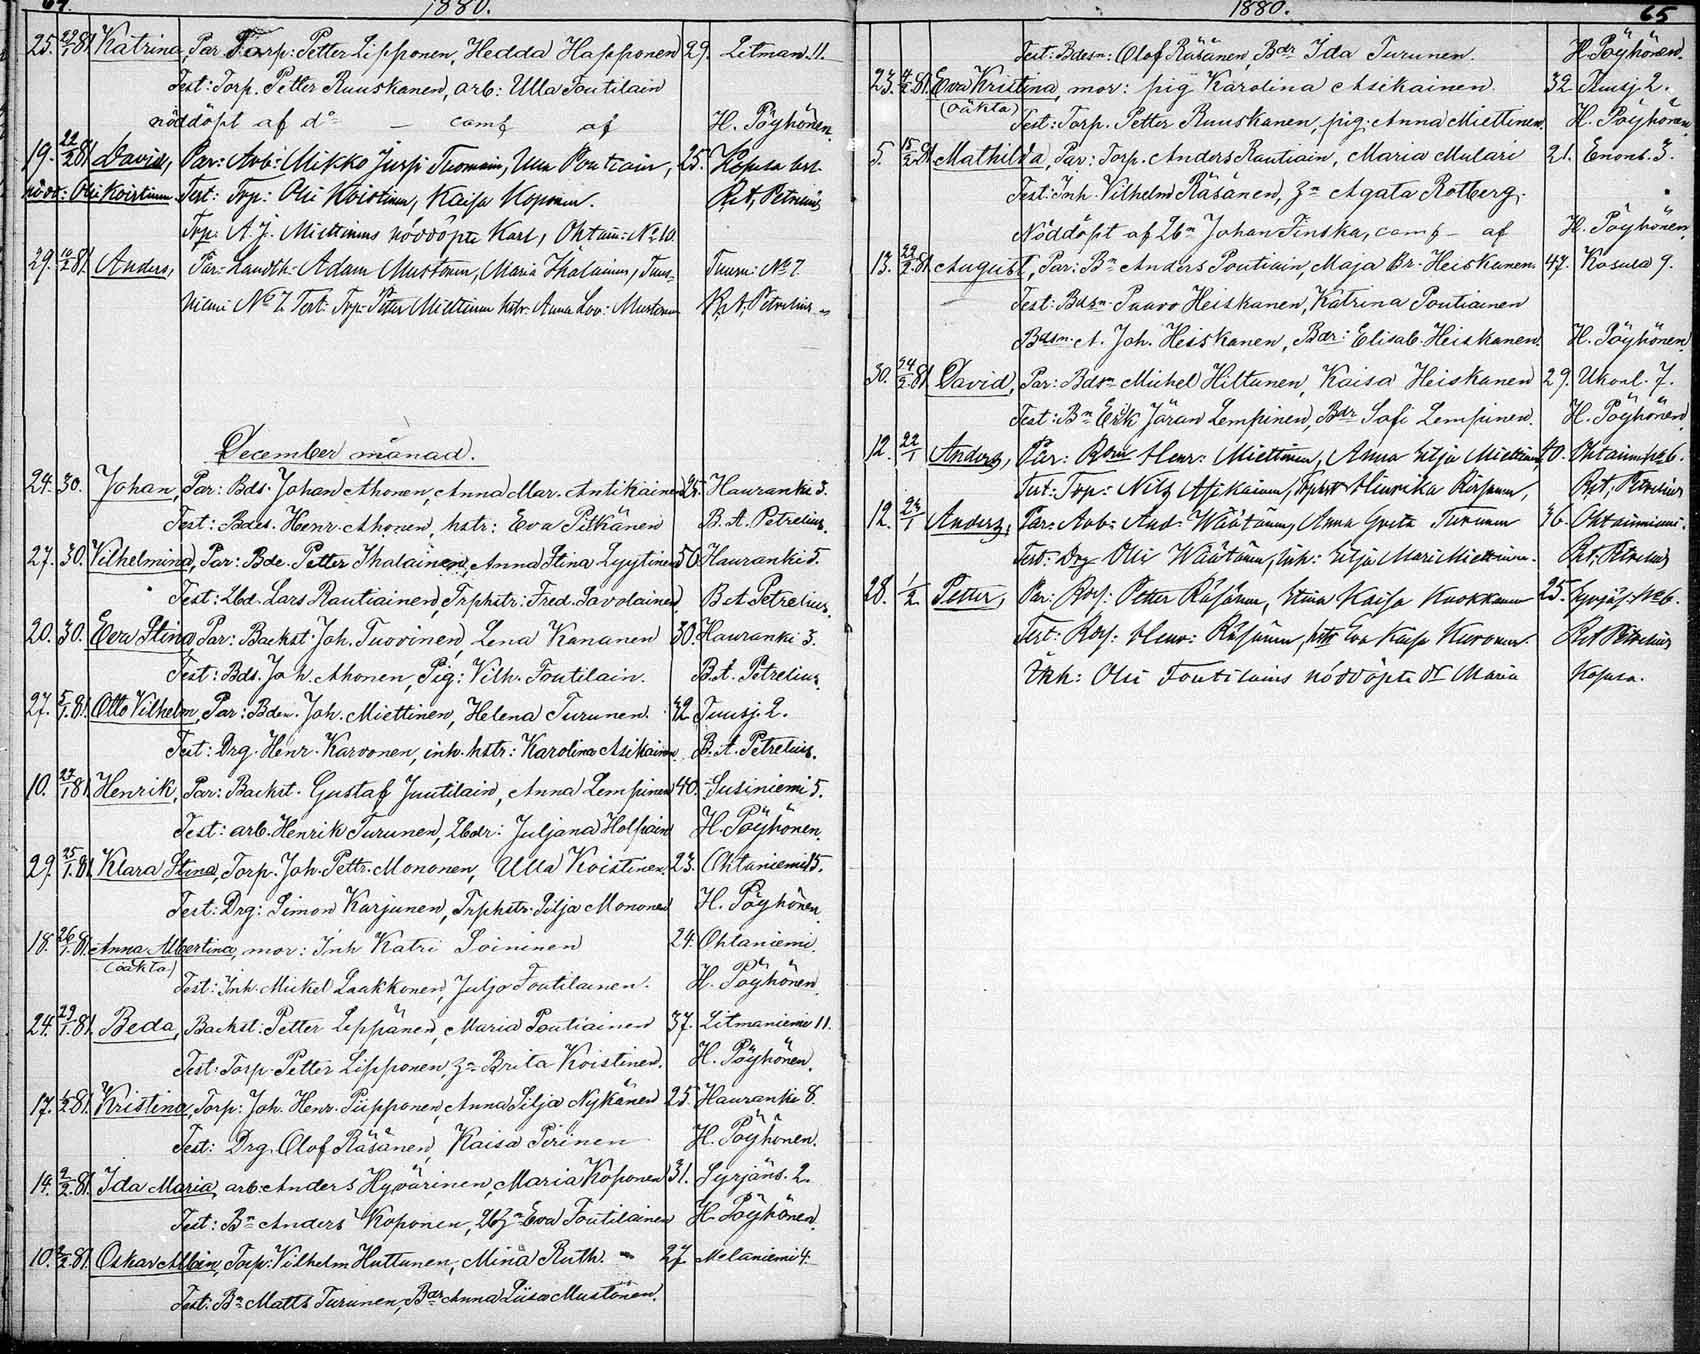 64. 1880.
25. 29/1 81. Katrina, Par. Torp: Petter Lipponen, Hedda Happonen 29. Litman. 11.
Test: Torp. Petter Ruuskanen, arb: Ulla Toutilain
nöddöpt af d:o — comf af H. Pöyhönen.
19. 22/2 81 David, Par: Arb: Mikko Tuomain, Ulla 25. Kopusa
nödd: Olli Koistinen Test: Trp: Olli Koistinen, Kaisa Koponen. Petrelius
Trp: A. J. Miettinens nöddöpte Karl, Ohtani: No 10.
29. 10/2 81. Anders, Par: Landth. Adam Mustonen, Maria Ihalainen, Tuus- Tuusn: No 7.
niemi No 7. Test: Trp: Petter Miettinen hstr: Anna Lov: Mustonen B. A. Petrelius
December månad.
24. 30. Johan, Par: Bds. Johan Ahonen, Anna Mar. Antikainen 25. Hauranki 3.
Test: Bdes. Henr. Ahonen, hstr: Eva Pitkänen B. A. Petrelius.
27. 30. Vilhelmina, Par: Bde. Petter Ihalainen, Anna Stina Lyytinen 30 Hauranki 5.
Test: Lbd. Lars Rautiainen, Trphstr: Fred. Savolainen B A Petrelius.
20. 30. Eeva Stina, Par: Backst. Joh. Tuovinen, Lena Kananen 30. Hauranki 3.
Test: Bds. Joh. Ahonen, Pig: Vilh. Toutilain. B. A. Petrelius.
27. 5/1. 81. Otto Vilhelm, Par: Bden. Joh. Miettinen, Helena Turunen. 42 Tuusj. 2.
Test: Drg. Henr. Karvonen, inh. hstr: Karolina Asikainen. B. A. Petrelius.
10. 27/1 81. Henrik, Par: Backst. Gustaf Juutilain, Anna Lempinen 40. Susiniemi 5.
Test: arb. Henrik Turunen, Lbdr: Juljana Holpain H. Pöyhönen.
29. 25/1. 81. Klara Stina, Torp. Joh. Pettr. Mononen, Ulla Koistinen. 23. Ohtaniemi 15.
Test: Drg: Simon Karjunen, Trphstr. Silja Mononen H. Pöyhönen.
18. 26/1. 81. Anna Albertina, mor: Inh Katri Soininen 24. Ohtaniemi.
(oäkta) Test: Inh. Mickel Laakkonen, Juljo Toutilainen. H. Pöyhönen.
24. 29/1. 81. Beda, Backst: Petter Leppänen, Maria Poutiainen 37. Litmaniemi 11.
Test: Torp. Petter Lipponen, Brita Koistinen. H. Pöyhönen.
17. 81. Kristina, Torp: Joh. Henr. Piipponen, Anna Silja Nykänen 25. Hauranki 8.
Test: Drg. Olof Räsänen, Kaisa Pirinen H. Pöyhönen.
14. 2/2. 81. Ida Maria, arb: Anders Hyvärinen, Maria Koponen 31. Syrjäns. 2.
Test: Bn Anders Koponen, Eva Toutilainen H. Pöyhönen.
10. 81. Oskar Albin, Torp: Vilhelm Huttunen, Mina Ruth. 27 Melaniemi 4.
Test: Bn Matts Turunen, Bdr Anna Liisa Mustonen.
1880. 65
Test: Bdesn: Olof Räsänen, Bdr Ida Turunen. H. Pöyhönen.
23. 4/2. 81. Eva Kristina, mor: pig Karolina Asikainen 32. Tuusj. 2.
(oäkta) Test: Torp. Petter Ruuskanen, pig. Anna Miettinen. H. Pöyhönen.
5. 15/2. 81 Mathilda, Par: Torp. Anders Rautiain, Maria Mulari 21. Enons. 3.
Test: Inh. Vilhelm Räsänen, Agata Rotberg.
Nöddöpt af Johan Tinska, comf — af H. Pöyhönen.
13. 22/2. 81 August, Par: Bn Anders Poutiain, Maja Br. Heiskanen 47. Kosula 9.
Test: Bdsn. Paavo Heiskanen, Katrina Poutiainen
Bdsn. A. Joh. Heiskanen, Bdr: Elisab. Heiskanen. H. Pöyhönen.
30. 24/2. 81. David, Par: Bdsn Michel Hiltunen, Kaisa Heiskanen 29. Ukonl. 7.
Test: Bn Erik Jöran Lempinen, Bdr Sofi Lempinen. H. Pöyhönen
12. 22/1 Anders, Par: Henr: Miettinen, Anna Silja Miettinen 40. Ohtanm No 6.
Test: Trp: Nils Asikainen, Trphstr Hinrika Räsänen, Petrelius
12. 23/1 Anders, Par: Arb: And: Väätänen, Anna Greta Turunen 36. Ohtaniemi.
Test: Drg Olli Väätänen, Ink: Silja Mari Miettinen. Petrelius
28. 1/2. Petter, Par: Petter Räsänen, Stina Kaisa Kuokkanen 25. Syrjäs. No 6.
Test: Henr: Räsänen, hstr Eva Kaisa Kuronen. Petrelius
Olli Toutilains nöddöpte Dr Maria Kosula.